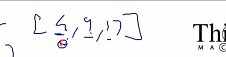 [4, 9, 17]
Thi
M A C